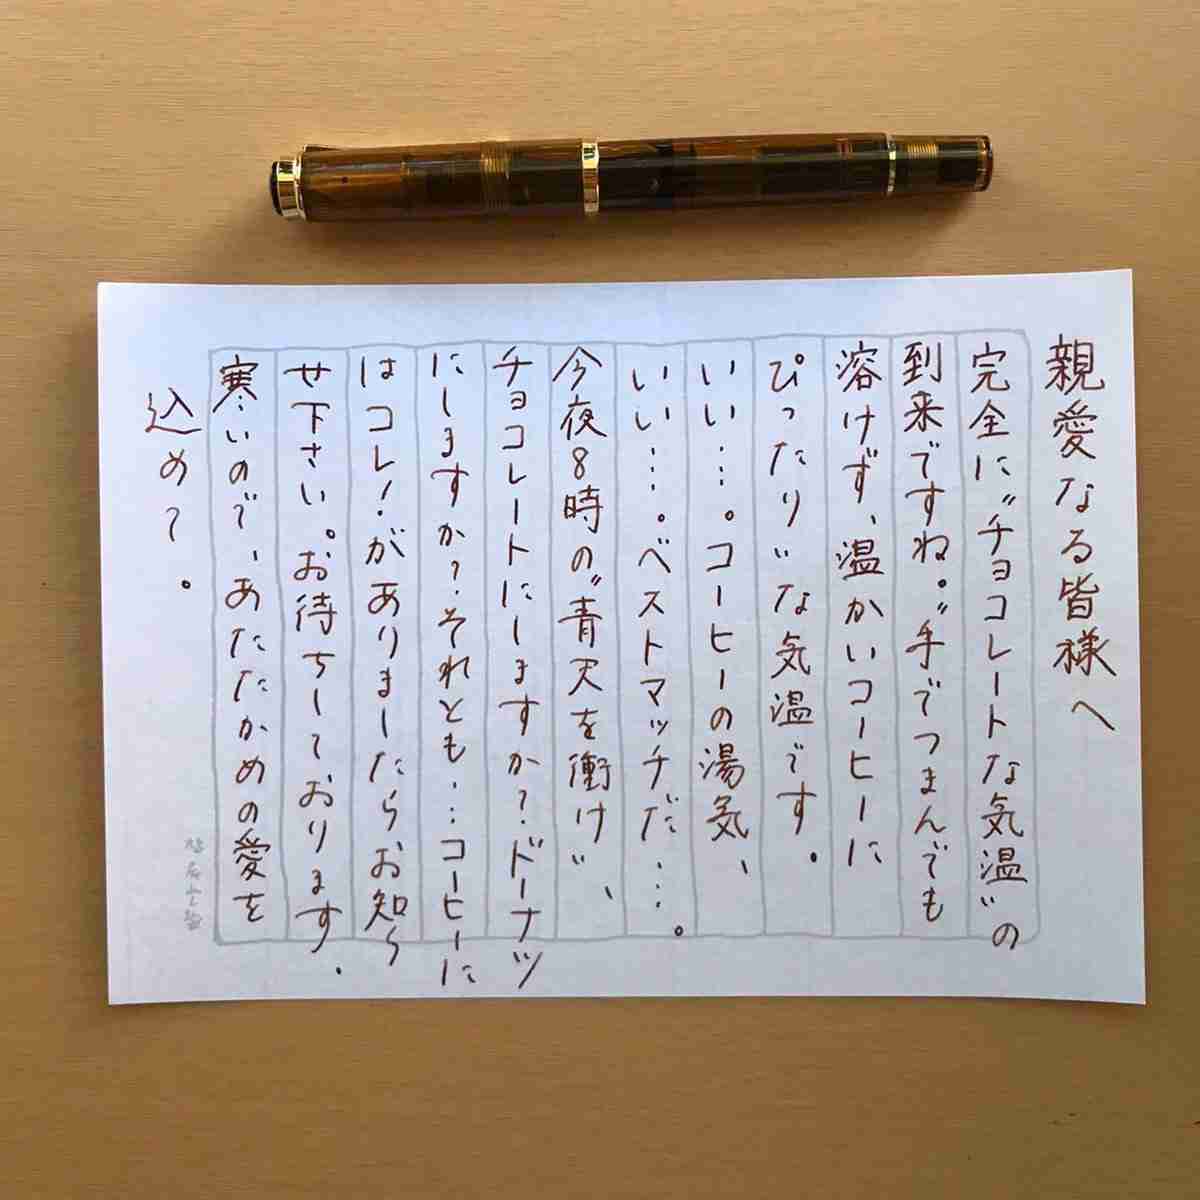 親愛なる皆様へ
完全に〝チョコレートな気温〟の
到来ですね。〝手でつまんでも
溶けず、温かいコーヒーに
ぴったり〟な気温です。
いい…。コーヒーの湯気、
いい…。ベストマッチだ…。
今夜8時の〝青天を衝け〟、
チョコレートにしますか？ドーナツ
にしますか？それとも…コーヒーに
はコレ！がありましたらお知ら
せ下さい。お待ちしております。
寒いので、あたたかめの愛を
込めて。